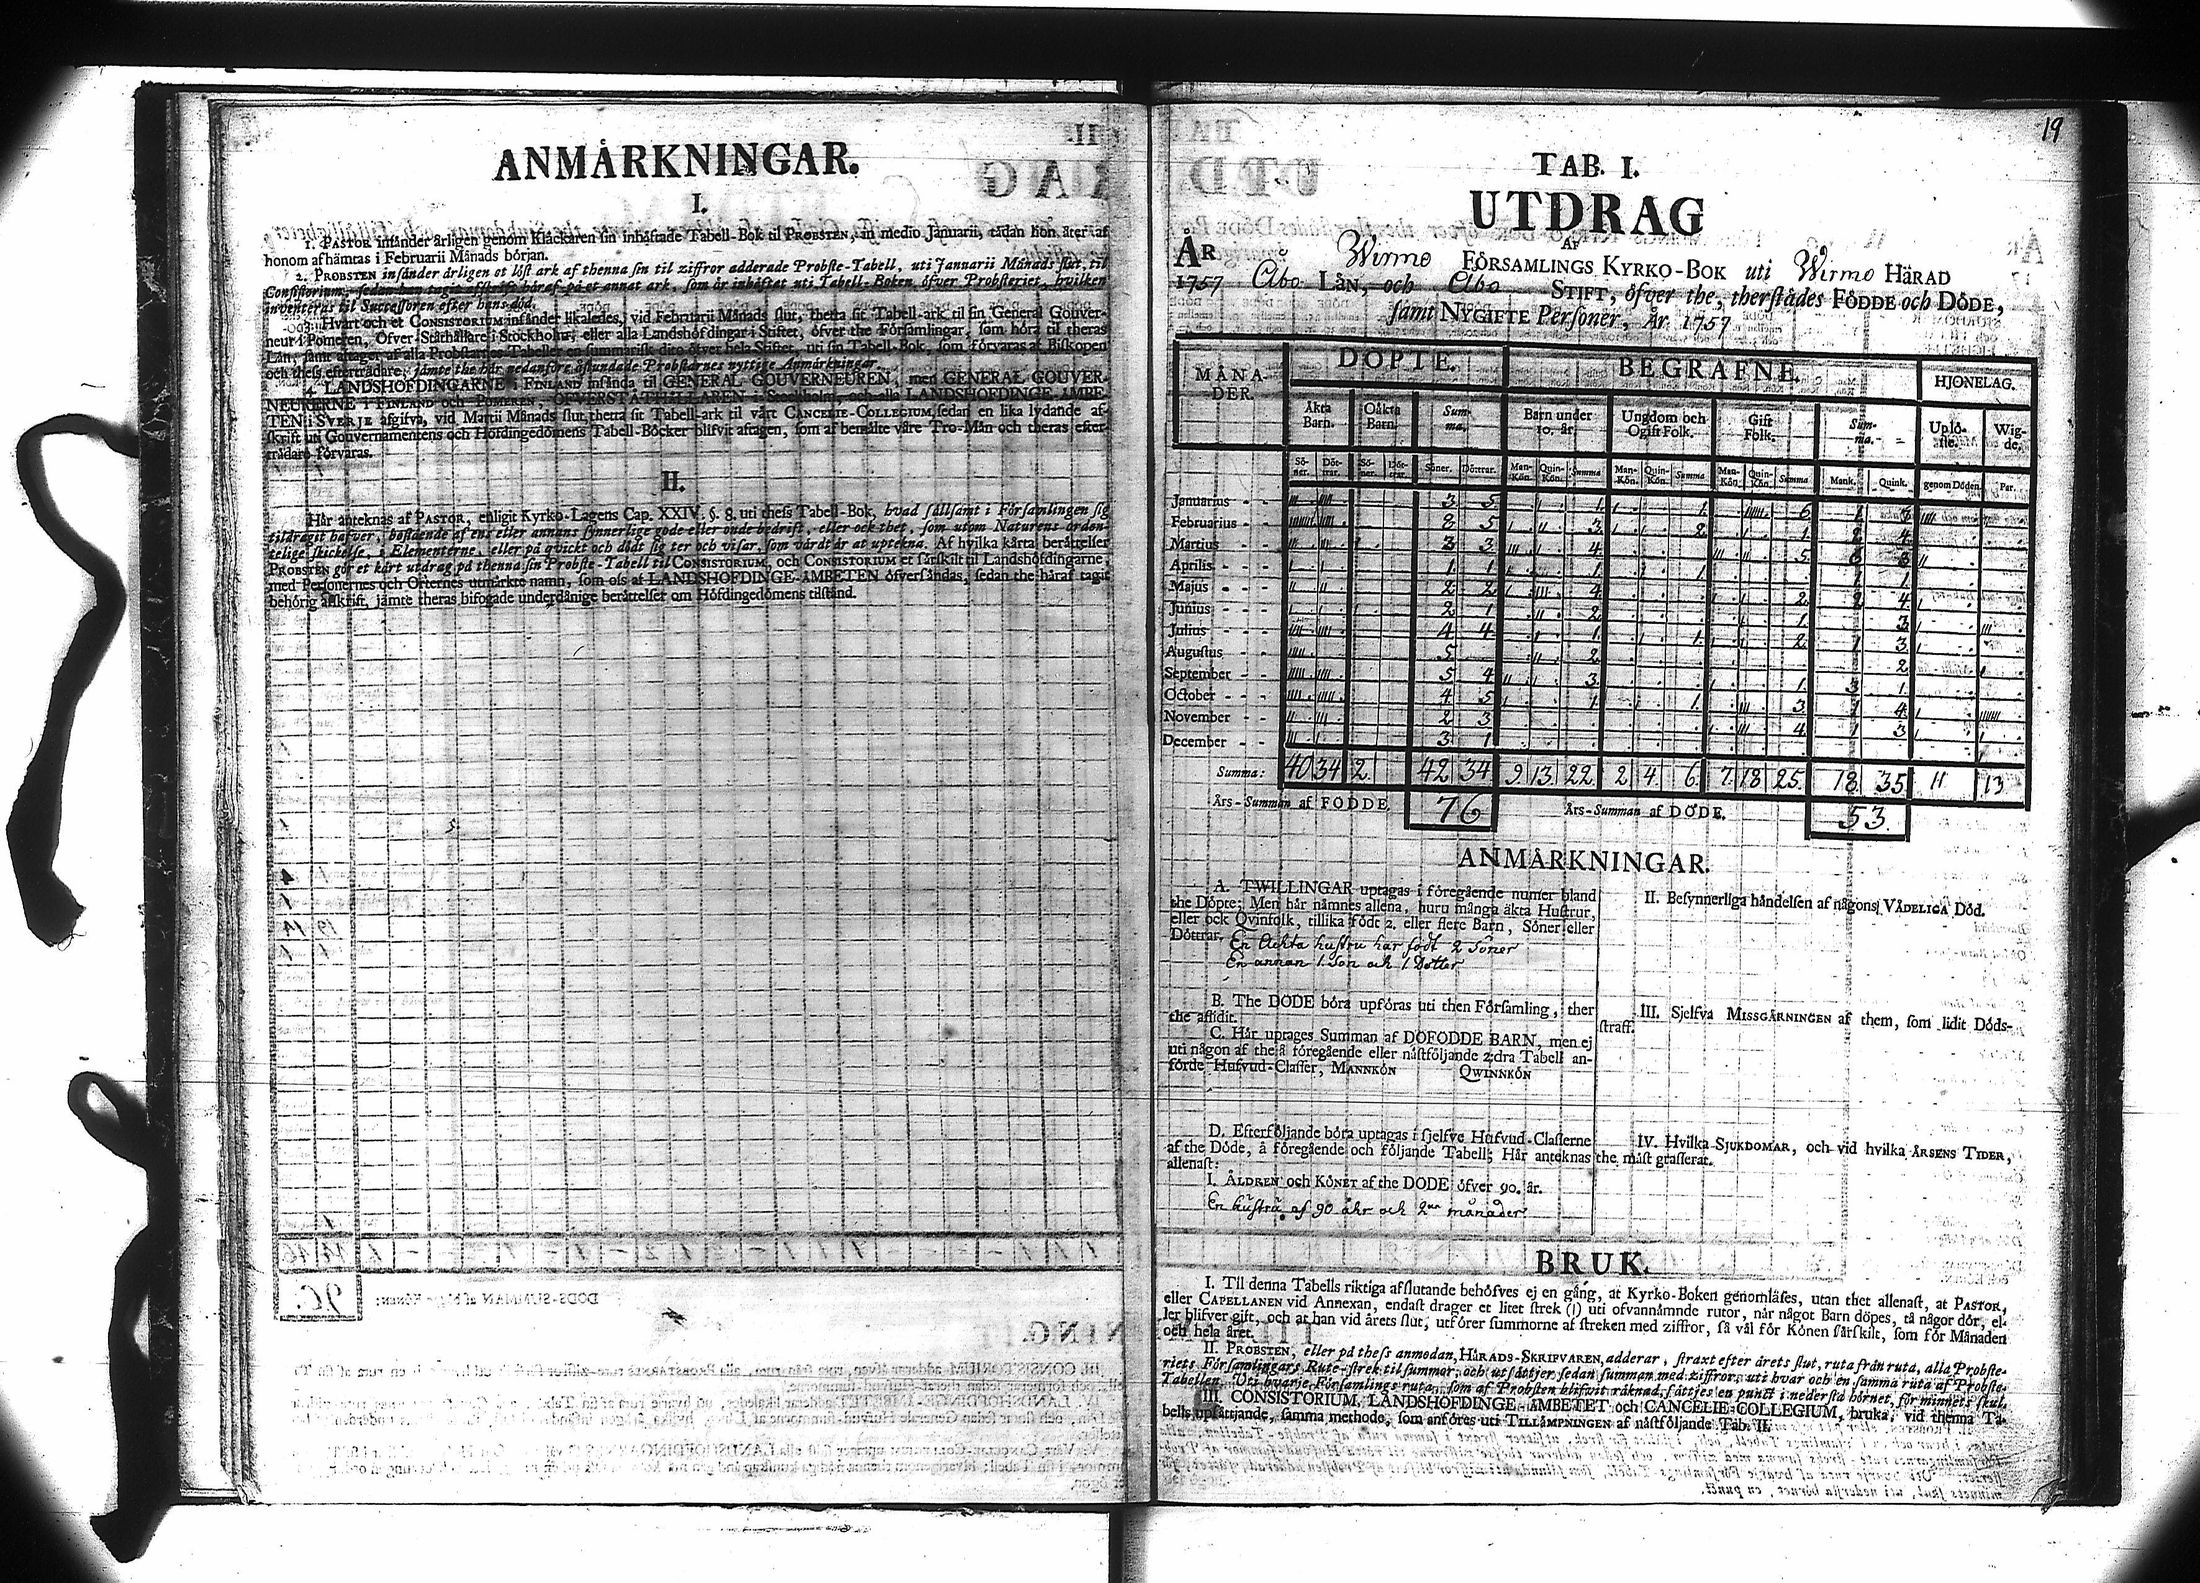 ANMÅRKNINGAR.
I.
1. PASTOR insånder årligen genom Klåckaren sin inhåftade Tabell-Bok til PROBSTEN, in medio Januarii, tådan hon åter af
honom afhåmtas i Februarii Månads början.
2. PROBSTEN insånder årligen et löst ark af thenna sin til ziffror adderade Probste-Tabell, uti Januarii Månads slut, til
Consistorium, sedan han tagit afskrift håraf på et annat ark, som år inhåftat uti Tabell-Boken, öfver Probsteriet, hvilken
inventeras til Successoren efter hans död.
3. Hvart och et CONSISTORIUM insånder likaledes, vid Februarii Månads slut, thetta sit Tabell-ark til sin General Gouver-
neur i Pomeren, Öfver-Ståthållare i Stockholm, eller alla Landshöfdingar i Stiftet, öfver the Församlingar, som höra til theras
Lån, samt aftager af alla Probstarnes Tabeller en summarisk dito öfver hela Stiftet, uti sin Tabell-Bok, som förvaras af Biskopen
och thess eftertrådare, jåmte the hår nedanföre åstundade Probstarnes nyttige Anmårkningar.
4. LANDSHÖFDINGARNE i FINLAND insånda til GENERAL GOUVERNEUREN, men GENERAL GOUVER-
NEURERNE i FINLAND och POMEREN, ÖFVERSTÅTHÅLLAREN i Stockholm, och alla LANDSHÖFDINGE-ÅMBE-
TEN i SVERJE afgifva, vid Martii Månads slut, thetta sit Tabell-ark til vårt CANCELIE-COLLEGIUM, sedan en lika lydande af-
skrift uti Gouvernamentens och Höfdingedömens Tabell-Böcker blifvit aftagen, som af bemålte våre Tro-Mån och theras efter-
trådare förvaras.
II.
Hår anteknas af PASTOR, enligit Kyrko-Lagens Cap. XXIV. §. 8. uti thess Tabell-Bok, hvad sållsamt i Församlingen sig
tildragit hafver, bestående af ens eller annans synnerlige gode eller onde bedrift, eller ock thet, som utom Naturens orden-
telige skickelse, i Elementerne, eller på qvickt och dödt sig ter och visar, som vårdt år at uptekna. Af hvilka kårta beråttelser
PROBSTEN gör et kårt utdrag på thenna sin Probste-Tabell til CONSISTORIUM, och CONSISTORIUM et sårskilt til Landshöfdingarne,
med Personernes och Orternes utmårkte namn, som oss af LANDSHÖFDINGE-ÅMBETEN öfversåndas, sedan the håraf tagit
behörig afskrift, jåmte theras bifogade underdånige beråttelser om Höfdingedömens tilstånd.
19
TAB. I.
UTDRAG
AF
ÅR Wirmo FÖRSAMLINGS KYRKO-BOK uti Wirmo HÅRAD
1757 Åbo LÅN, och Åbo STIFT, öfver the, therstådes FÖDDE och DÖDE,
samt NYGIFTE Personer, År 1757
MÅNA-DER. DÖPTE. BEGRAFNE. HJONELAG.
Åkta Barn. Oåkta Barn. Summa. Barn under 10. år. Ungdom och Ogift Folk. Gift Folk. Summa. Uplöste. Wigde.
Söner. Döttrar. Söner. Döttrar. Söner. Döttrar. Man-Kön. Quin-Kön. Summa Man-Kön. Quin-Kön. Summa Man-Kön. Quin-Kön. Summa Mank. Quink. genom Döden. Par.
Januarius - - 3 5 1 1 6
Februarius - - 8 5 3 2 1
Martius - - 3 3 4 5
Aprilis - - 1 1 1 1
Majus - - 2 2 4 2
Junius - - 2 1 2 1
Julius - - 4 4 1 1 2
Augustus - - 5 2
September - - 5 4 3 1
October - - 4 5 1 1 3
November - - 2 3 4
December - - 3 1
Summa: 40 34 2. 42 34 9 13 22 2 4 6 7 18 25 18 35 11 13
Års-Summan af FÖDDE. 76 Års-Summan af DÖDE. 53
ANMÅRKNINGAR.
A. TWILLINGAR uptagas i föregående numer bland
the Döpte; Men hår nåmnes allena, huru många åkta Hustrur,
eller ock Qvinfolk, tillika födt 2. eller flere Barn, Söner eller
Döttrar.
En Ächta hustru har födt 2 Söner
En annan 1. Son och 1 Dotter
B. The DÖDE böra upföras uti then Församling, ther
the aflidit.
C. Hår uptages Summan af DÖFÖDDE BARN, men ej
uti någon af theså föregående eller nåstföljande 2:dra Tabell an-
förde Hufvud-Classer, MANNKÖN QWINNKÖN
D. Efterföljande böra uptagas i sjelfve Hufvud-Classerne
af the Döde, å föregående och följande Tabell; Hår anteknas
allenast:
I. ÅLDREN och KÖNET af the DÖDE öfver 90. år.
En hustru af 90 åhr och 2ne månader
II. Besynnerliga håndelsen af någons VÅDELIGA Död.
III. Sjelfva MISSGÅRNINGEN af them, som lidit Döds-
straff.
IV. Hvilka SJUKDOMAR, och vid hvilka ÅRSENS TIDER,
the måst grasserat.
BRUK.
I. Til denna Tabells riktiga afslutande behöfves ej en gång, at Kyrko-Boken genomlåses, utan thet allenast, at PASTOR,
eller CAPELLANEN vid Annexan, endast drager et litet strek (|) uti ofvannåmnde rutor, når något Barn döpes, tå någor dör, el-
ler blifver gift, och at han vid årets slut, utförer summorne af streken med ziffror, så vål för Könen sårskilt, som för Månaden
och hela året.
II. PROBSTEN, eller på thess anmodan HÅRADS-SKRIFVAREN, adderar, straxt efter årets slut, ruta från ruta, alla Probste-
riets Församlingars Rute-strek til summor, och utsåttjer sedan summan med ziffror, uti hvar och en samma ruta af Probste-
Tabellen. Uti hvarje Församlings ruta, som af Probsten blifvit råknad, såttjes en punct i nedersta hörnet, för minnets skul.
III. CONSISTORIUM, LANDSHÖFDINGE-ÅMBETET och CANCELIE-COLLEGIUM, bruka, vid thenna Ta-
bells upsåttjande, samma methode, som anföres uti TILLÅMPNINGEN af nåstföljande Tab. II.